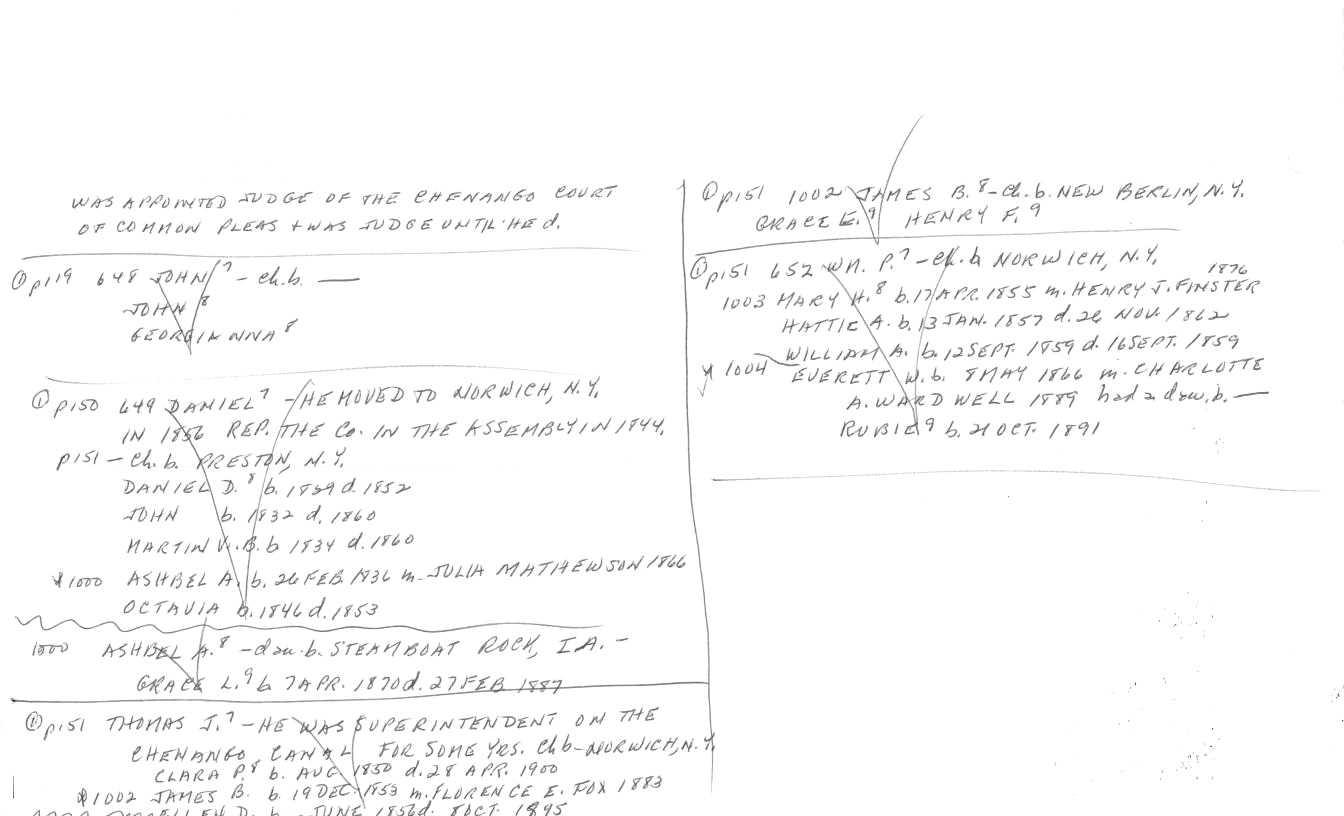 WAS APPOINTED JUDGE OF THE CHENANGO COURT
OF COMMON PLEAS + WAS JUDGE UNTIL HE d.
① p119 648 JOHN⁷ - ch.b. —
JOHN⁸
GEORGIANNA⁸
① p150 649 DANIEL⁷ - HE MOVED TO NORWICH, N.Y.
IN 1856 REP. THE Co. IN THE ASSEMBLY IN 1844.
p151 - Ch. b. PRESTON, N.Y.
DANIEL D.⁸ b. 1829 d. 1852
JOHN b. 1832 d. 1860
MARTIN V. B. b 1834 d. 1860
*1000 ASHBEL A. b. 26 FEB 1836 m. JULIA MATHEWSON 1866
OCTAVIA b. 1846 d. 1853
1000 ASHBEL A.⁸ - dau. b. STEAMBOAT ROCK, IA. -
GRACE L.⁹ b 7 APR. 1870 d. 27 FEB 1887
① p151 THOMAS J.⁷ - HE WAS SUPERINTENDENT ON THE
CHENANGO CANAL FOR SOME YRS. Ch b - NORWICH, N.Y.
CLARA P.⁸ b. AUG 1850 d. 28 APR. 1900
*1002 JAMES B. b. 19 DEC. 1853 m. FLORENCE E. FOX 1883
D. b. JUNE 1856 d. 8 OCT. 1895
① p151 1002 JAMES B.⁸ - Ch. b. NEW BERLIN, N.Y.
GRACE E.⁹ HENRY F.⁹
① p151 652 WM. P.⁷ - Ch. b NORWICH, N.Y.
1003 MARY H.⁸ b. 17 APR. 1855 m. HENRY J. FINSTER 1876
HATTIE A. b. 13 JAN. 1857 d. 26 NOV. 1862
WILLIAM A. b. 12 SEPT. 1859 d. 16 SEPT. 1859
* 1004 EVERETT W. b. 8 MAY 1866 m. CHARLOTTE
A. WARDWELL 1889 had a dau. b. —
RUBIE⁹ b. 21 OCT. 1891